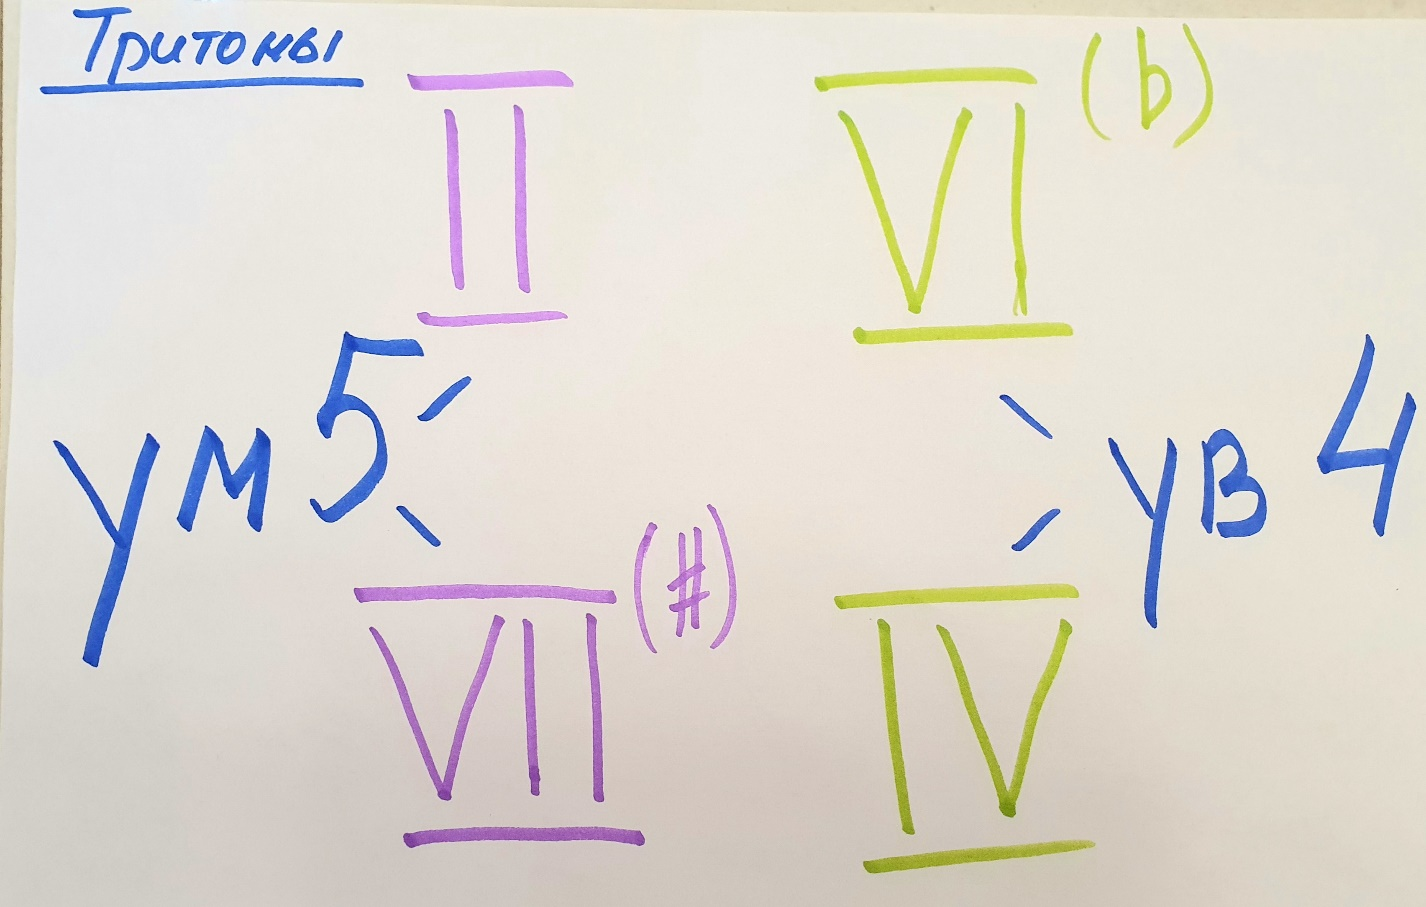 Тритоны
II VI (b)
ум5 ув 4
VII (#) IV